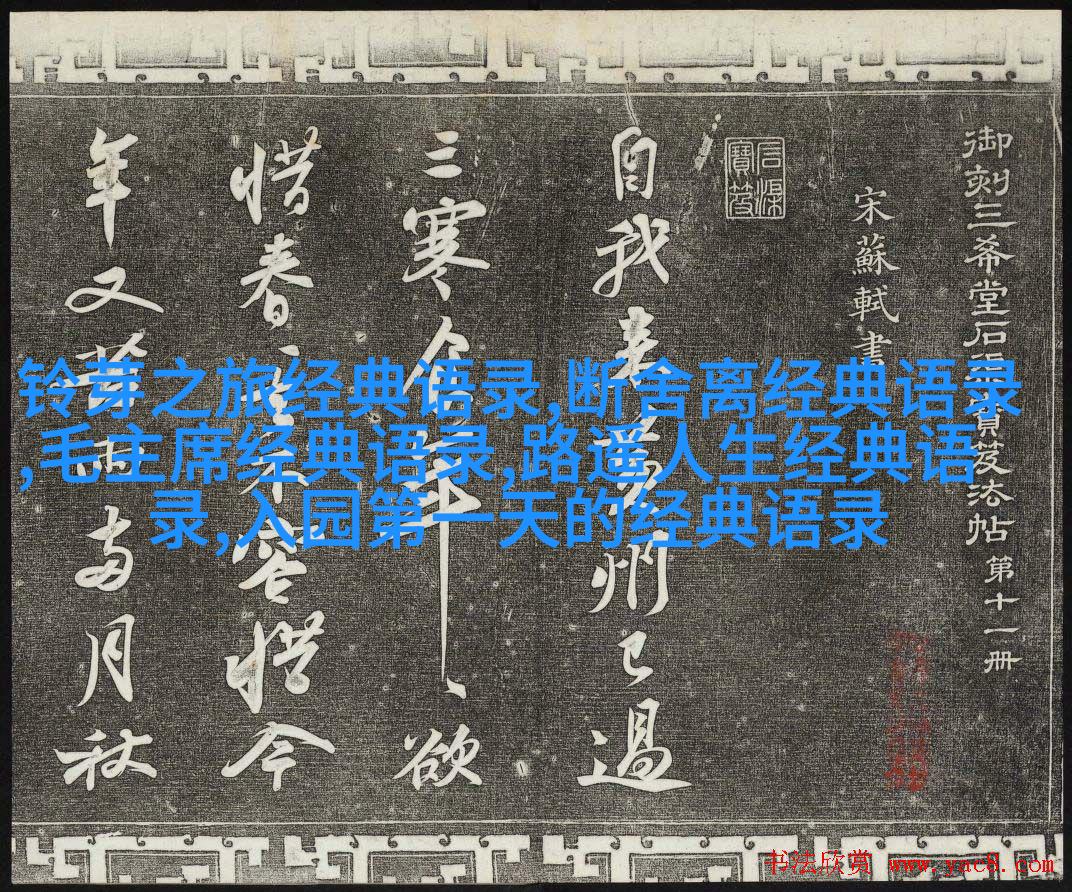 御刻三希堂石渠寳笈法帖 第十一册
宋蘇軾書
石渠寳笈
自我来黄州已過
三寒食年〻欲
惜春〻去不容惜今
年又苦雨兩月秋
铃芽之旅经典语录,断舍离经典语录
,毛主席经典语录,路遥人生经典语
录,入园第一天的经典语录
书法欣赏 www.yac8.com